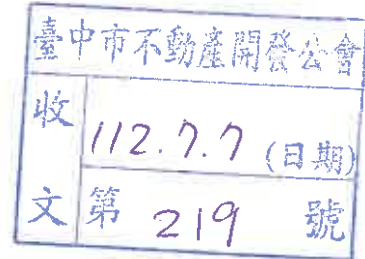 臺中市不動產開發公會
收文
112.7.7 (日期)
第 219 號